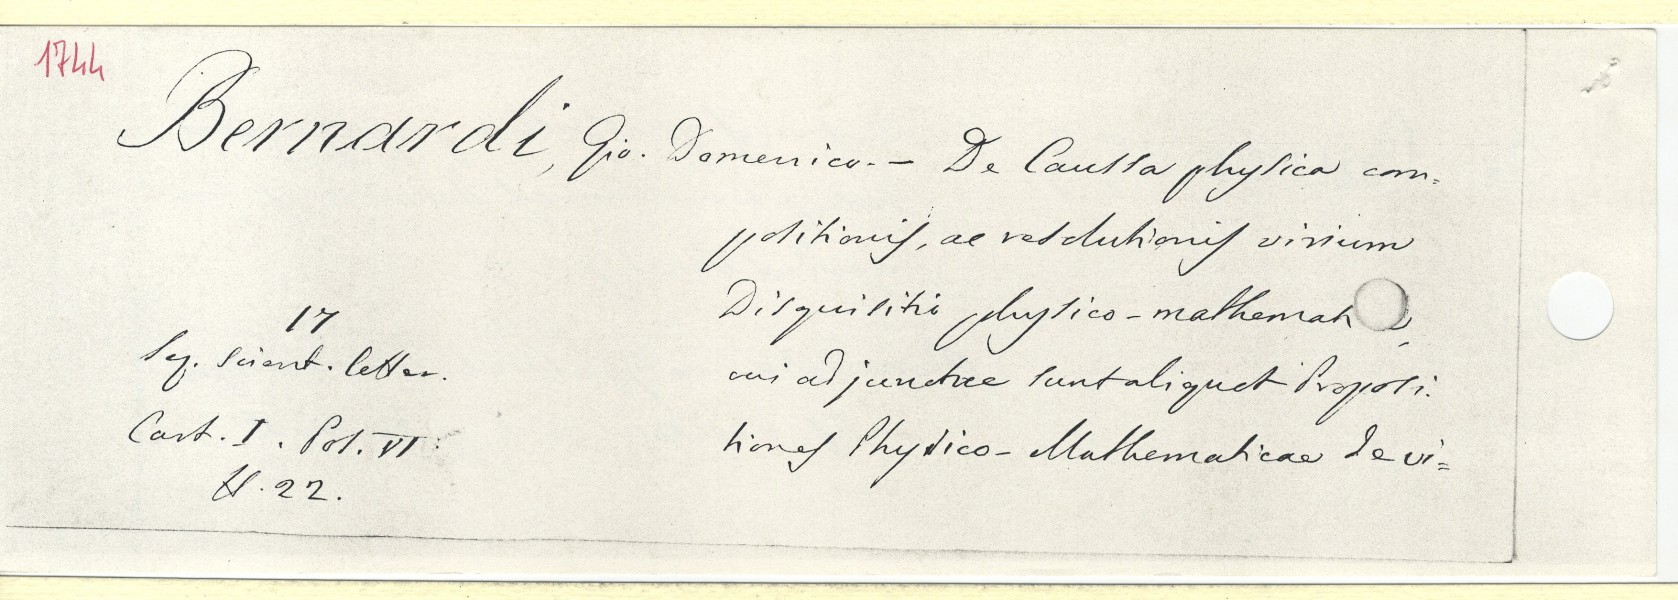 1744
Bernardi, Gio. Domenico. - De Caussa physica com=
positionis, ac resolutionis virium
Disquisitio physico-mathemati
cui adjunctae sunt aliquot Proposi.
tiones Physico-Mathematicae de vi=
17
Scient. letter.
Cart. I. Pos. VI
N. 22.